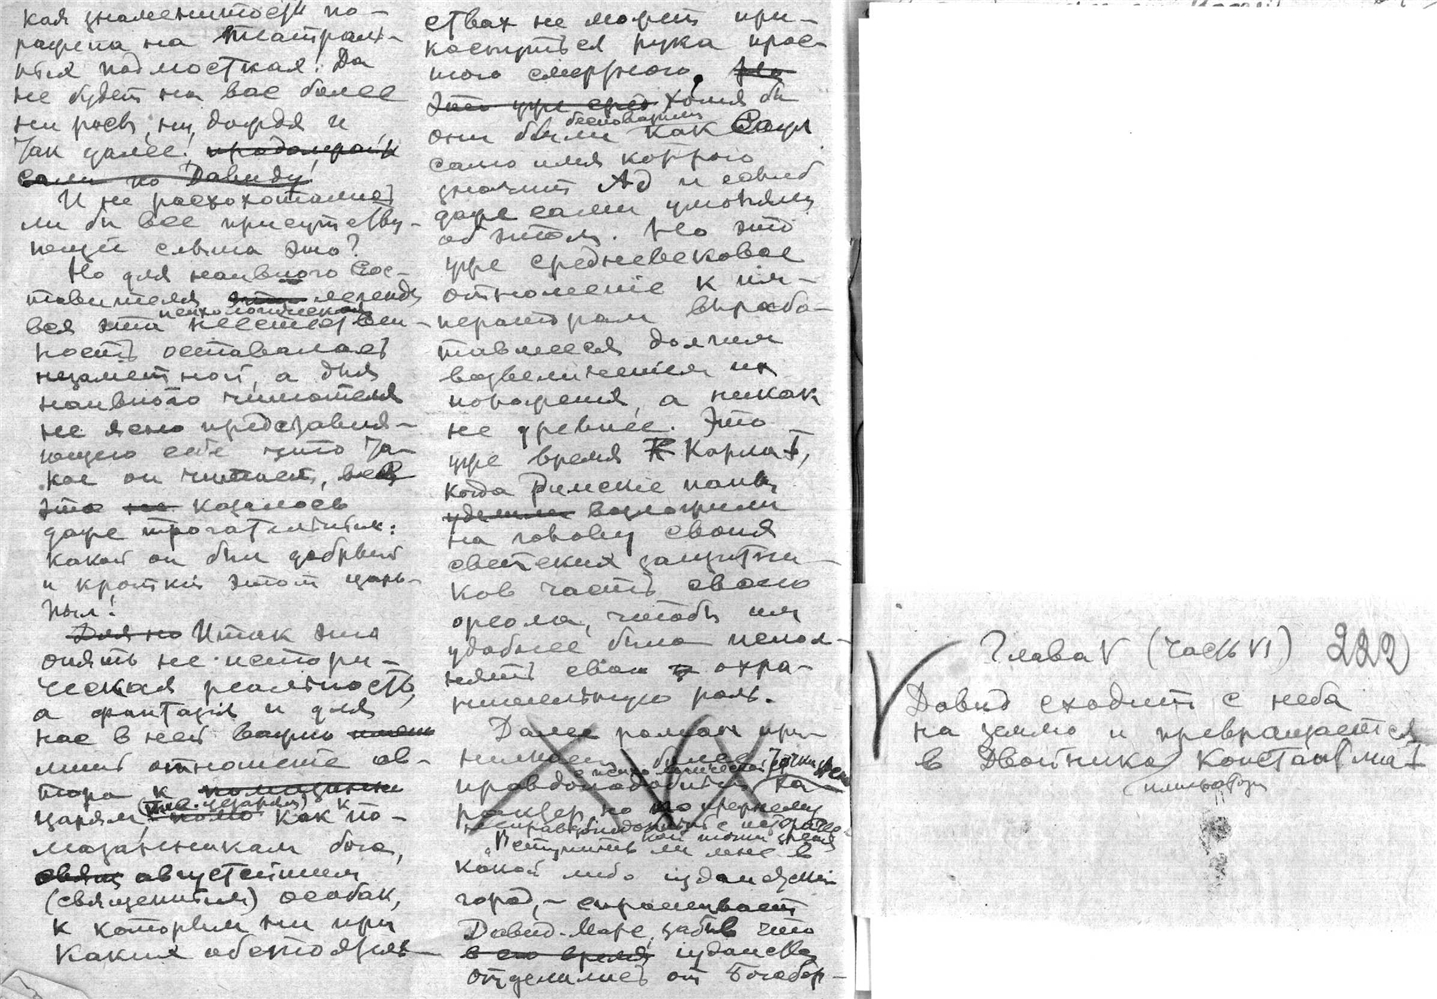 кая знаменитость по-
ражена на театраль-
ных подмостках: Да
не будет на вас более
ни росы, ни дождя и
так далее!
сами по Давиду!
И не расхохотались
ли бы все присутству-
ющие слыша это?
Но для наивного сос-
тавителя легенды
вся эта психологическая неестествен-
ность оставалась
незаметной, а для
наивного читателя
не ясно представля-
ющего себе что та-
кое он читает, все
это не казалось
даже трогательным:
какой он был добрый
и кроткий этот царь-
Для но Итак это
опять не истори-
ческая реальность,
а фантазия и для
нас в ней важно
лишь отношение ав-
тора к
царям как к по-
мазанникам бога,
августейшим
(священным) особам,
к которым ни при
каких обстоятель-
ствах не может при-
коснуться рука прос-
того смертного, Но
Это уже сред хотя бы
они были бесноватыми как Саул
само имя которого
значит Ад и если б
даже сами умоляли
об этом. Но это
уже средневековое
отношение к им-
ператорам вырабо-
тавшееся долгим
возвеличением их
поколения, а никак
не древнее. Это
уже время Карла I,
когда Римские папы
уделили возложили
на голову своих
светских защитни-
ков часть своего
ореола, чтобы им
удобнее было испол-
нять свою охра-
нительную роль.
Далее роман при-
нимает более
правдоподобный с психологической точки зрения ха-
рактер, но по прежнему
"Вступить ли мне в
какой либо иудейский
город, - спрашивает
Давид-Марс, забыв что
в его время иудейство
отделились от Богобор-
Глава V (часть VI) 222
Давид сходит с неба
на землю и превращается
в Двойника Константина I